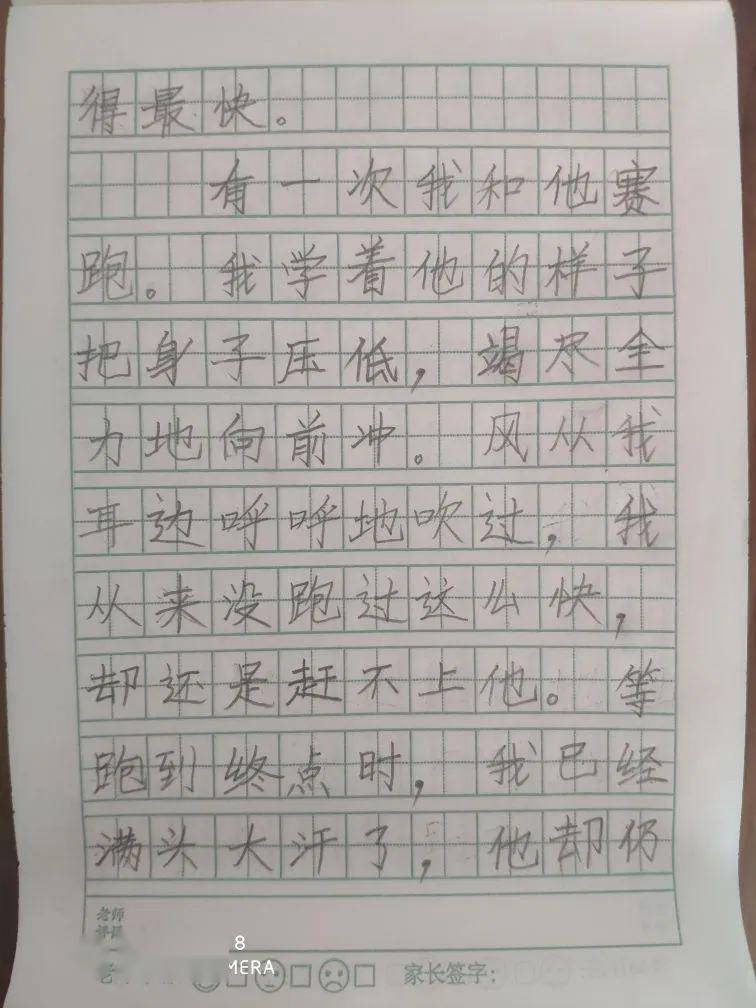 得最快。
有一次我和他赛
跑。我学着他的样子
把身子压低，竭尽全
力地向前冲。风从我
耳边呼呼地吹过，我
从来没跑过这么快，
却还是赶不上他。等
跑到终点时，我已经
满头大汗了，他却仍
老师
8
MERA
家长签字：